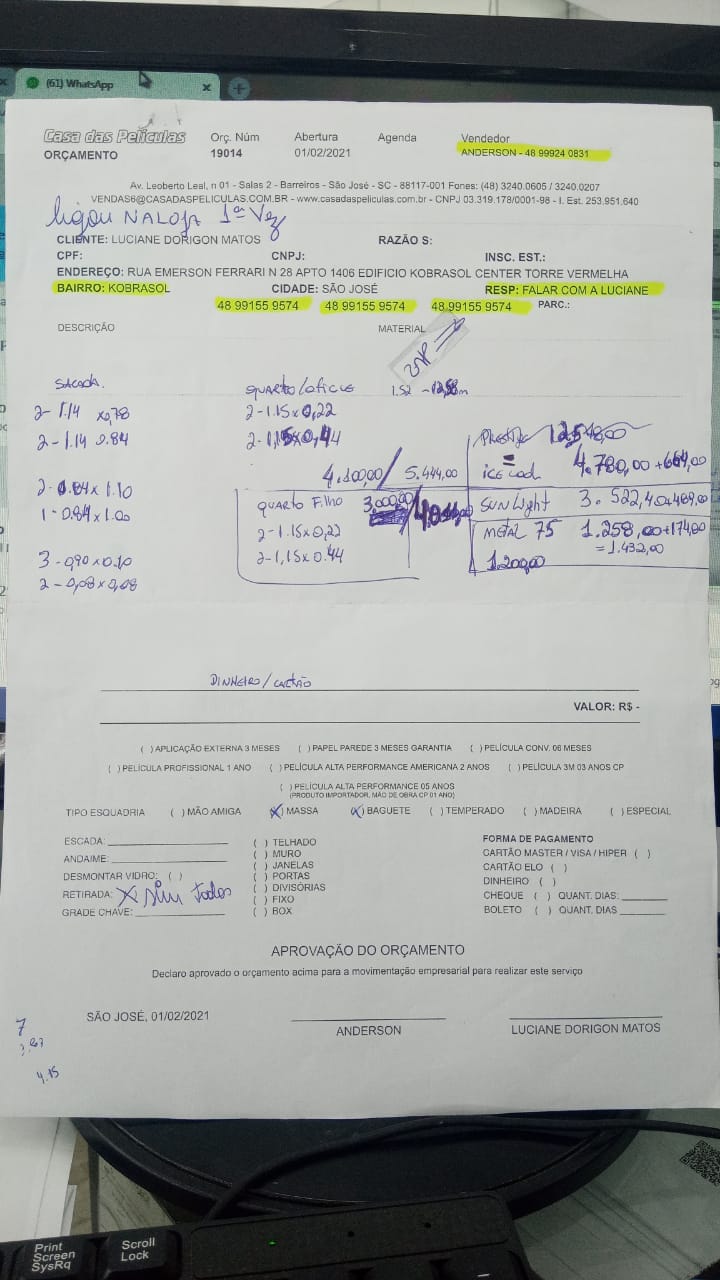 (61) WhatsApp
Casa das Películas
ORÇAMENTO
Orç. Núm
19014
Abertura
01/02/2021
Agenda
Vendedor
ANDERSON - 48 99924 0831
Av. Leoberto Leal, n 01 - Salas 2 - Barreiros - São José - SC - 88117-001 Fones: (48) 3240.0605 / 3240.0207
VENDAS6@CASADASPELICULAS.COM.BR - www.casadaspeliculas.com.br - CNPJ 03.319.178/0001-98 - I. Est. 253.951.640
ligou NA LOJA 1ª Vez
CLIENTE: LUCIANE DORIGON MATOS RAZÃO S:
CPF: CNPJ: INSC. EST.:
ENDEREÇO: RUA EMERSON FERRARI N 28 APTO 1406 EDIFICIO KOBRASOL CENTER TORRE VERMELHA
BAIRRO: KOBRASOL CIDADE: SÃO JOSÉ RESP: FALAR COM A LUCIANE
48 99155 9574 48 99155 9574 48 99155 9574 PARC.:
DESCRIÇÃO MATERIAL
SACADA.
2- 1.14 x0,78
2- 1.14 0.84
2- 0.84 x 1.10
1- 0.84 x 1.00
3 - 0,90 x 0.10
2 - 0,08 x 0,08
QUARTO/Oficce 1.52
2-1.15 x 0,22
2-1,15x0,44
4.100,00 / 5.444,00
QUARTO Filho 3.000,00
2-1.15 x 0,22
2-1,15 x 0.44
Prestige
ice cool 4.780,00 +664,00
SUN Light 3.522,40+489,00
METAL 75 1.258,00+174,00
= 1.432,00
1.200,00
DINHEIRO / CARTÃO
VALOR: R$ -
( ) APLICAÇÃO EXTERNA 3 MESES ( ) PAPEL PAREDE 3 MESES GARANTIA ( ) PELÍCULA CONV. 06 MESES
( ) PELÍCULA PROFISSIONAL 1 ANO ( ) PELÍCULA ALTA PERFORMANCE AMERICANA 2 ANOS ( ) PELÍCULA 3M 03 ANOS CP
( ) PELÍCULA ALTA PERFORMANCE 05 ANOS
(PRODUTO IMPORTADOR, MÃO DE OBRA CP 01 ANO)
TIPO ESQUADRIA ( ) MÃO AMIGA (X) MASSA (X) BAGUETE ( ) TEMPERADO ( ) MADEIRA ( ) ESPECIAL
ESCADA:
ANDAIME:
DESMONTAR VIDRO: ( )
RETIRADA: X Sim todos
GRADE CHAVE:
( ) TELHADO
( ) MURO
( ) JANELAS
( ) PORTAS
( ) DIVISÓRIAS
( ) FIXO
( ) BOX
FORMA DE PAGAMENTO
CARTÃO MASTER / VISA / HIPER ( )
CARTÃO ELO ( )
DINHEIRO ( )
CHEQUE ( ) QUANT. DIAS:
BOLETO ( ) QUANT. DIAS
APROVAÇÃO DO ORÇAMENTO
Declaro aprovado o orçamento acima para a movimentação empresarial para realizar este serviço
SÃO JOSÉ, 01/02/2021
ANDERSON
LUCIANE DORIGON MATOS
7
4.15
Print
Screen
SysRq
Scroll
Lock